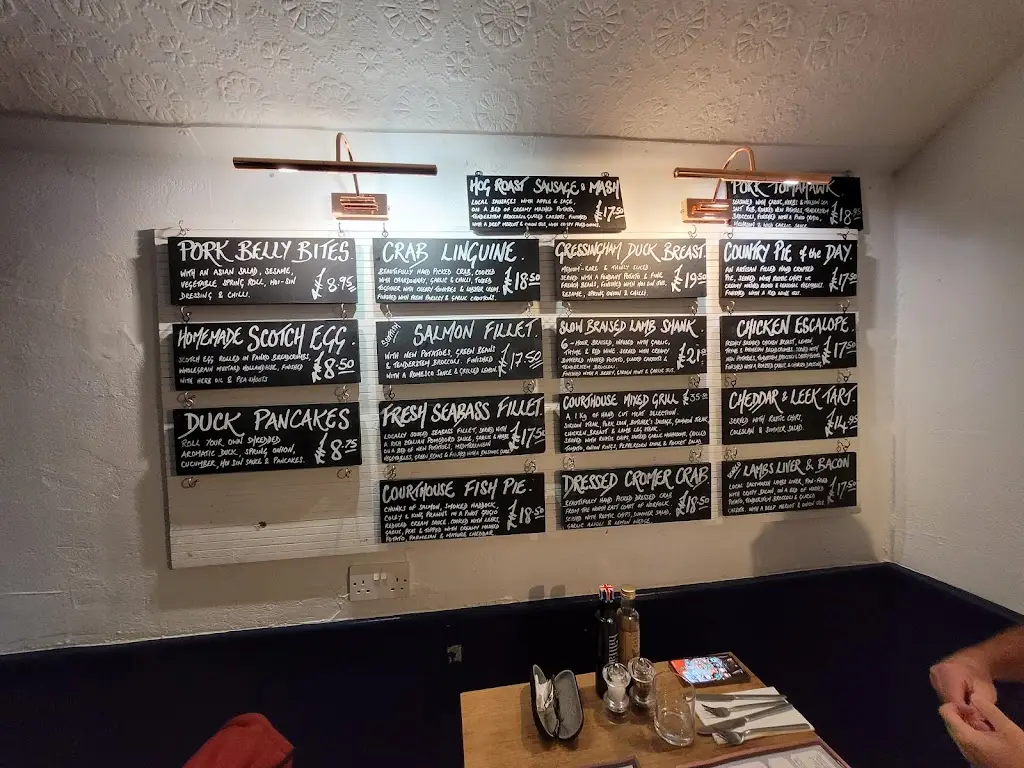 HOG ROAST SAUSAGE & MASH
LOCAL SAUSAGES WITH APPLE & SAGE,
ON A BED OF CREAMY MASHED POTATO,
TENDERSTEM BROCCOLI, GLAZED CARROTS, FINISHED
WITH A DEEP MERLOT & ONION JUS, WITH CRISPY
£17.50
PORK TOMAHAWK
SEASONED WITH GARLIC, HERBS &
£18.95
PORK BELLY BITES.
WITH AN ASIAN SALAD, SESAME,
VEGETABLE SPRING ROLL, HOI-SIN
DRESSING & CHILLI.
£8.95
HOMEMADE SCOTCH EGG.
SCOTCH EGG ROLLED IN PANKO BREADCRUMBS,
WHOLEGRAIN MUSTARD HOLLANDAISE, FINISHED
WITH HERB OIL & PEA SHOOTS
£8.50
DUCK PANCAKES
ROLL YOUR OWN SHREDDED
AROMATIC DUCK, SPRING ONION,
CUCUMBER, HOI SIN SAUCE & PANCAKES.
£8.75
CRAB LINGUINE.
BEAUTIFULLY HAND PICKED CRAB, COOKED
WITH CHARDONNAY, GARLIC & CHILLI, TOSSED
TOGETHER WITH CHERRY TOMATOES & LOBSTER CREAM,
FINISHED WITH FRESH PARSLEY & GARLIC CROUTONS.
£18.50
SALMON FILLET.
WITH NEW POTATOES, GREEN BEANS
& TENDERSTEM BROCCOLI, FINISHED
WITH A ROMESCO SAUCE & GRILLED LEMON.
£17.50
FRESH SEABASS FILLET.
LOCALLY SOURCED SEABASS FILLET, SERVED WITH
A RICH SICILIAN POMODORO SAUCE, GARLIC & HERBS
ON A BED OF NEW POTATOES, MEDITERRANEAN
VEGETABLES, GREEN BEANS & FINISHED WITH
£17.50
COURTHOUSE FISH PIE.
CHUNKS OF SALMON, SMOKED HADDOCK,
COLEY & KING PRAWNS IN A PINOT GRIGIO
REDUCED CREAM SAUCE, COOKED WITH LEEKS,
GARLIC, PEAS & TOPPED WITH CREAMY MASHED
POTATO, PARMESAN & MATURE CHEDDAR.
£18.50
GRESSINGHAM DUCK BREAST.
MEDIUM-RARE & THINLY SLICED
SERVED WITH A FONDANT POTATO & PINK
GRAPEFRUIT, FINISHED WITH HOI SIN JUS,
SESAME, SPRING ONION & CHILLI.
£19.50
SLOW BRAISED LAMB SHANK.
6-HOUR BRAISED, INFUSED WITH GARLIC,
THYME & RED WINE. SERVED WITH CREAMY
BUTTERED MASHED POTATO, GLAZED CARROTS &
TENDERSTEM BROCCOLI.
£21
COURTHOUSE MIXED GRILL £35.50
A 1 KG OF HAND CUT MEAT SELECTION.
SIRLOIN STEAK, PORK LOIN, BUTCHER'S SAUSAGE, GAMMON STEAK,
CHICKEN BREAST & LAMB LEG STEAK.
SERVED WITH RUSTIC CHIPS, ROASTED GARLIC MUSHROOMS, GRILLED
TOMATO, ONION RINGS, PEPPERCORN SAUCE & ROCKET SALAD.
DRESSED CROMER CRAB.
BEAUTIFULLY HAND PICKED DRESSED CRAB
FROM THE NORTH EAST COAST OF NORFOLK.
SERVED WITH RUSTIC CHIPS, SUMMER SALAD,
GARLIC AIOLI & LEMON WEDGE.
£18.50
COUNTRY PIE of the DAY.
AN ARTISAN FILLED HAND CRAFTED
PIE, SERVED WITH RUSTIC CHIPS OR
CREAMY MASHED POTATO & SEASONAL VEGETABLES,
FINISHED WITH A RED WINE JUS.
£17.50
CHICKEN ESCALOPE.
FRESHLY BASHED CHICKEN BREAST, LEMON,
THYME & PARMESAN BREADCRUMBS, SERVED WITH
NEW POTATOES, TENDERSTEM BROCCOLI
FINISHED WITH A ROASTED GARLIC &
£17.50
CHEDDAR & LEEK TART.
SERVED WITH RUSTIC CHIPS,
COLESLAW & SUMMER SALAD.
£14.95
LAMBS LIVER & BACON
LOCAL LAMBS LIVER, PAN-FRIED
WITH CRISPY BACON, ON A BED OF MASHED
POTATO, TENDERSTEM BROCCOLI & GLAZED
CARROTS. WITH A DEEP MERLOT & ONION JUS.
£17.50